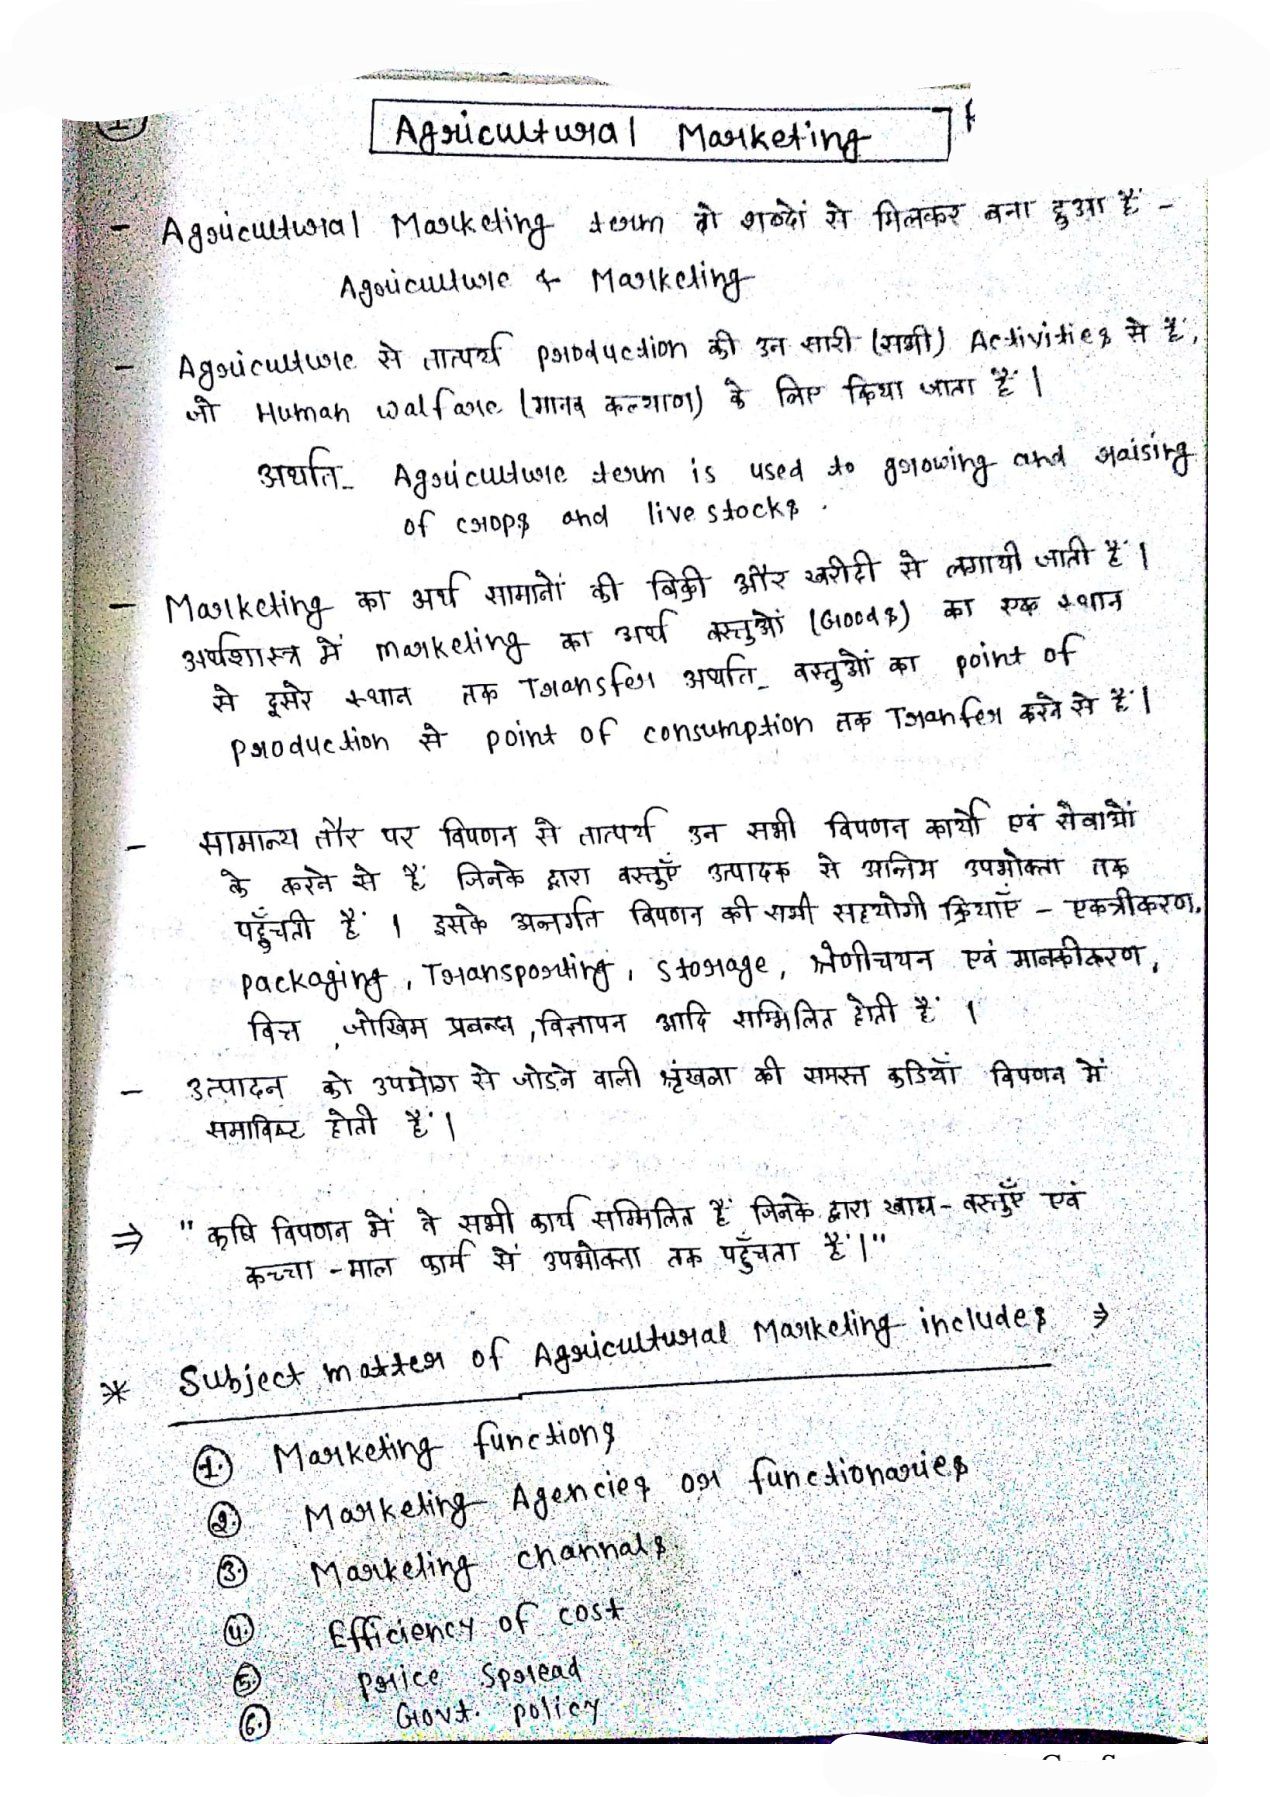 1
Agricultural Marketing
- Agricultural Marketing term दो शब्दों से मिलकर बना हुआ है -
Agriculture & Marketing
- Agriculture से तात्पर्य production की उन सारी (सभी) Activities से है,
जो Human walfare (मानव कल्याण) के लिए किया जाता है।
अर्थात- Agriculture term is used to growing and raising
of crops and live stocks.
- Marketing का अर्थ सामानों की बिक्री और खरीदी से लगायी जाती है।
अर्थशास्त्र में marketing का अर्थ वस्तुओं (Goods) का एक स्थान
से दूसरे स्थान तक Transfer अर्थात- वस्तुओं का point of
production से point of consumption तक Tranfer करने से है।
- सामान्य तौर पर विपणन से तात्पर्य उन सभी विपणन कार्यो एवं सेवाओं
के करने से है जिनके द्वारा वस्तुएँ उत्पादक से अन्तिम उपभोक्ता तक
पहुँचती है । इसके अन्तर्गत विपणन की सभी सहयोगी क्रियाएँ - एकत्रीकरण,
packaging, Transporting, Storage, श्रेणीचयन एवं मानकीकरण,
वित्त, जोखिम प्रबन्ध, विज्ञापन आदि सम्मिलित होती है ।
- उत्पादन को उपभोग से जोडने वाली श्रृंखला की समस्त कडियाँ विपणन में
समाविष्ट होती है।
⇒ "कृषि विपणन में वे सभी कार्य सम्मिलित है जिनके द्वारा खाद्य-वस्तुएँ एवं
कच्चा-माल फार्म से उपभोक्ता तक पहुँचता है।"
* Subject matter of Agricultural Marketing includes ⇒
1. Marketing functions
2. Marketing Agencies or functionaries
3. Marketing channals.
4. Efficiency of cost
5. Price Spread
6. Govt. policy